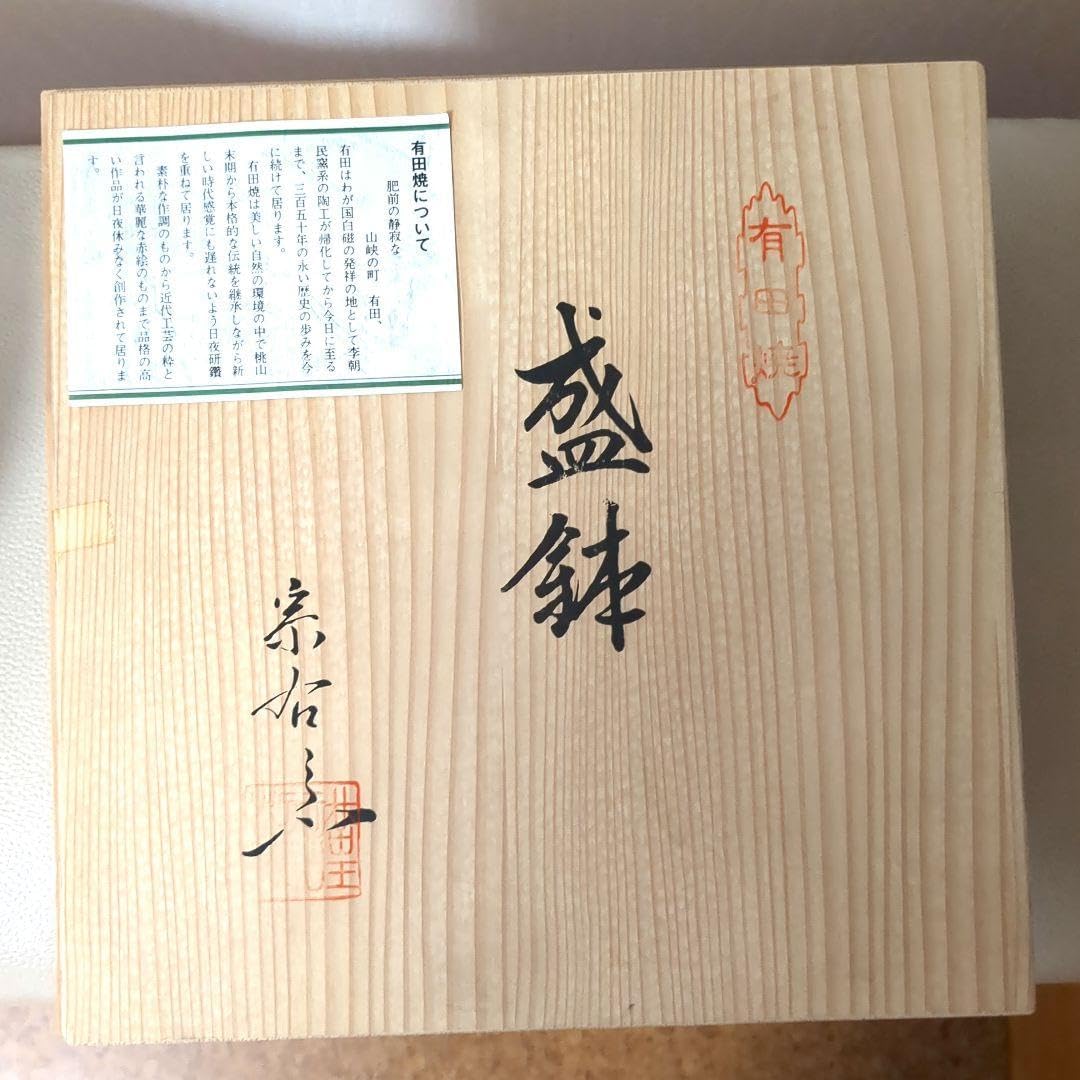 有田焼
盛鉢
宗右
有田焼について
肥前の静寂な
山峡の町 有田、
有田はわが国白磁の発祥の地として李朝
民窯系の陶工が帰化してから今日に至る
まで、三百五十年の永い歴史の歩みを今
に続けて居ります。
有田焼は美しい自然の環境の中で桃山
末期から本格的な伝統を継承しながら新
しい時代感覚にも遅れないよう日夜研鑽
を重ねて居ります。
素朴な作調のものから近代工芸の粋と
言われる華麗な赤絵のものまで品格の高
い作品が日夜休みなく創作されて居りま
す。